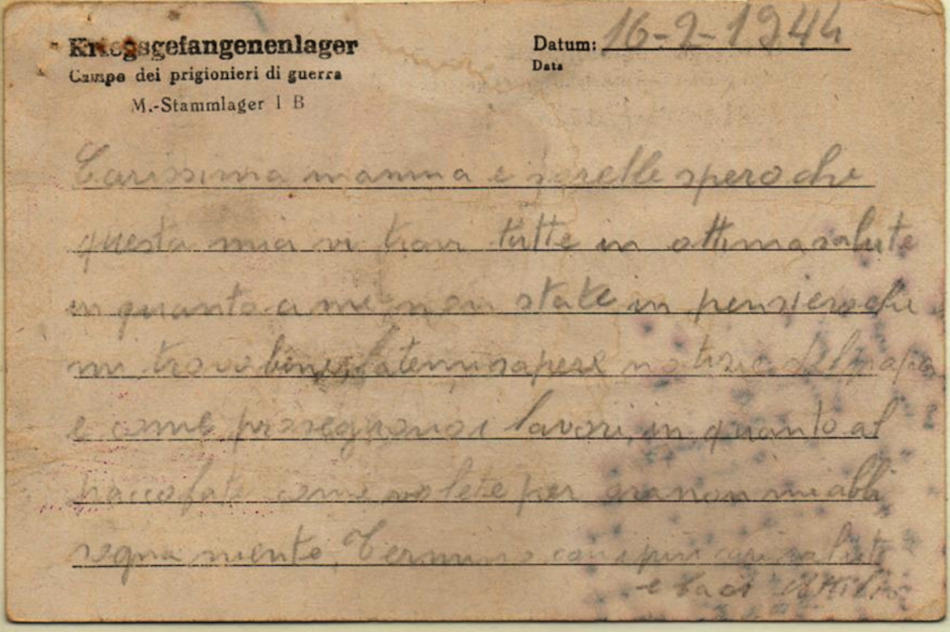 Kriegsgefangenenlager
Campo dei prigionieri di guerra
M.-Stammlager I B
Datum: 16-2-1944
Data
Carissima mamma e sorelle spero che
questa mia vi trovi tutte in ottima salute
in quanto a me non state in pensiero che
mi trovo bene fatemi sapere notizie del papà
e come proseguono i lavori, in quanto al
pacco fate come volete per ora non mi abbi
sogna niente, Termino con i più cari saluti
e baci Attilio